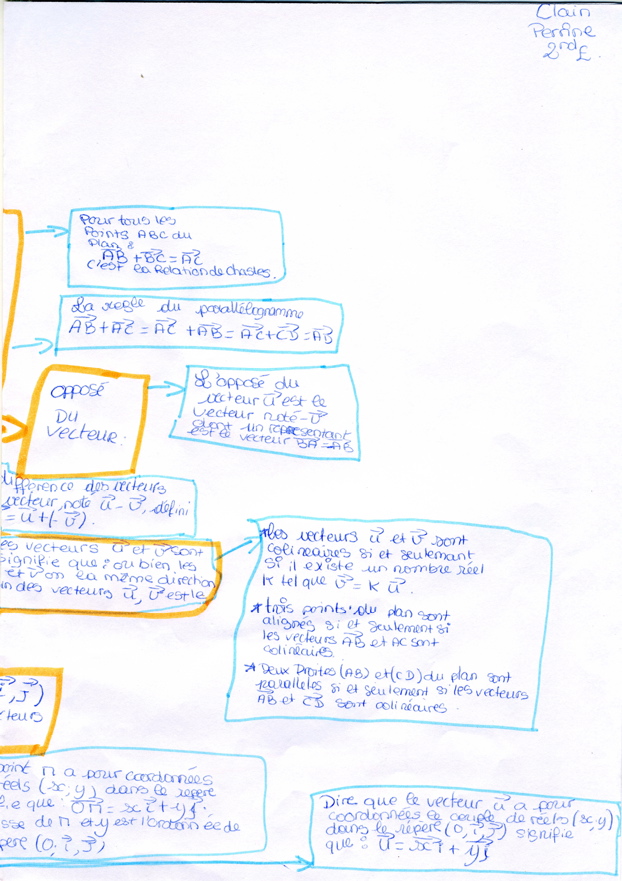 Clain
Perrine
2nd E.
Pour tous les
Points ABC du
Plan :
AB + BC = AC
C'est la Relation de chasles.
La regle du parallélogramme
AB + AC = AC + AB = AC + CD = AD
opposé
DU
Vecteur :
L'opposé du
vecteur u est le
vecteur noté -v
dont un représentant
est le vecteur BA = -AB
différence des vecteurs
vecteur, noté u - v, défini
= u + (-v).
es vecteurs u et v sont
signifie que : ou bien les
et v on la même direction
un des vecteurs u, v est le
*Les vecteurs u et v sont
colineaires si et seulement
si il existe un nombre réel
K tel que v = K u.
* trois points du plan sont
alignés si et seulement si
les vecteurs AB et AC sont
colinéaires.
* Deux Droites (AB) et (CD) du plan sont
paralleles si et seulement si les vecteurs
AB et CD sont colinéaires.
i, j)
cteurs
point M a pour coordonnées
réels (x; y) dans le repère
ie que : OM = xi + yj.
sse de M et y est l'ordonnée de
père (O, i, j)
Dire que le vecteur u a pour
coordonnées le couple de réels (x, y)
dans le repère (O, i, j) signifie
que : u = xi + yj